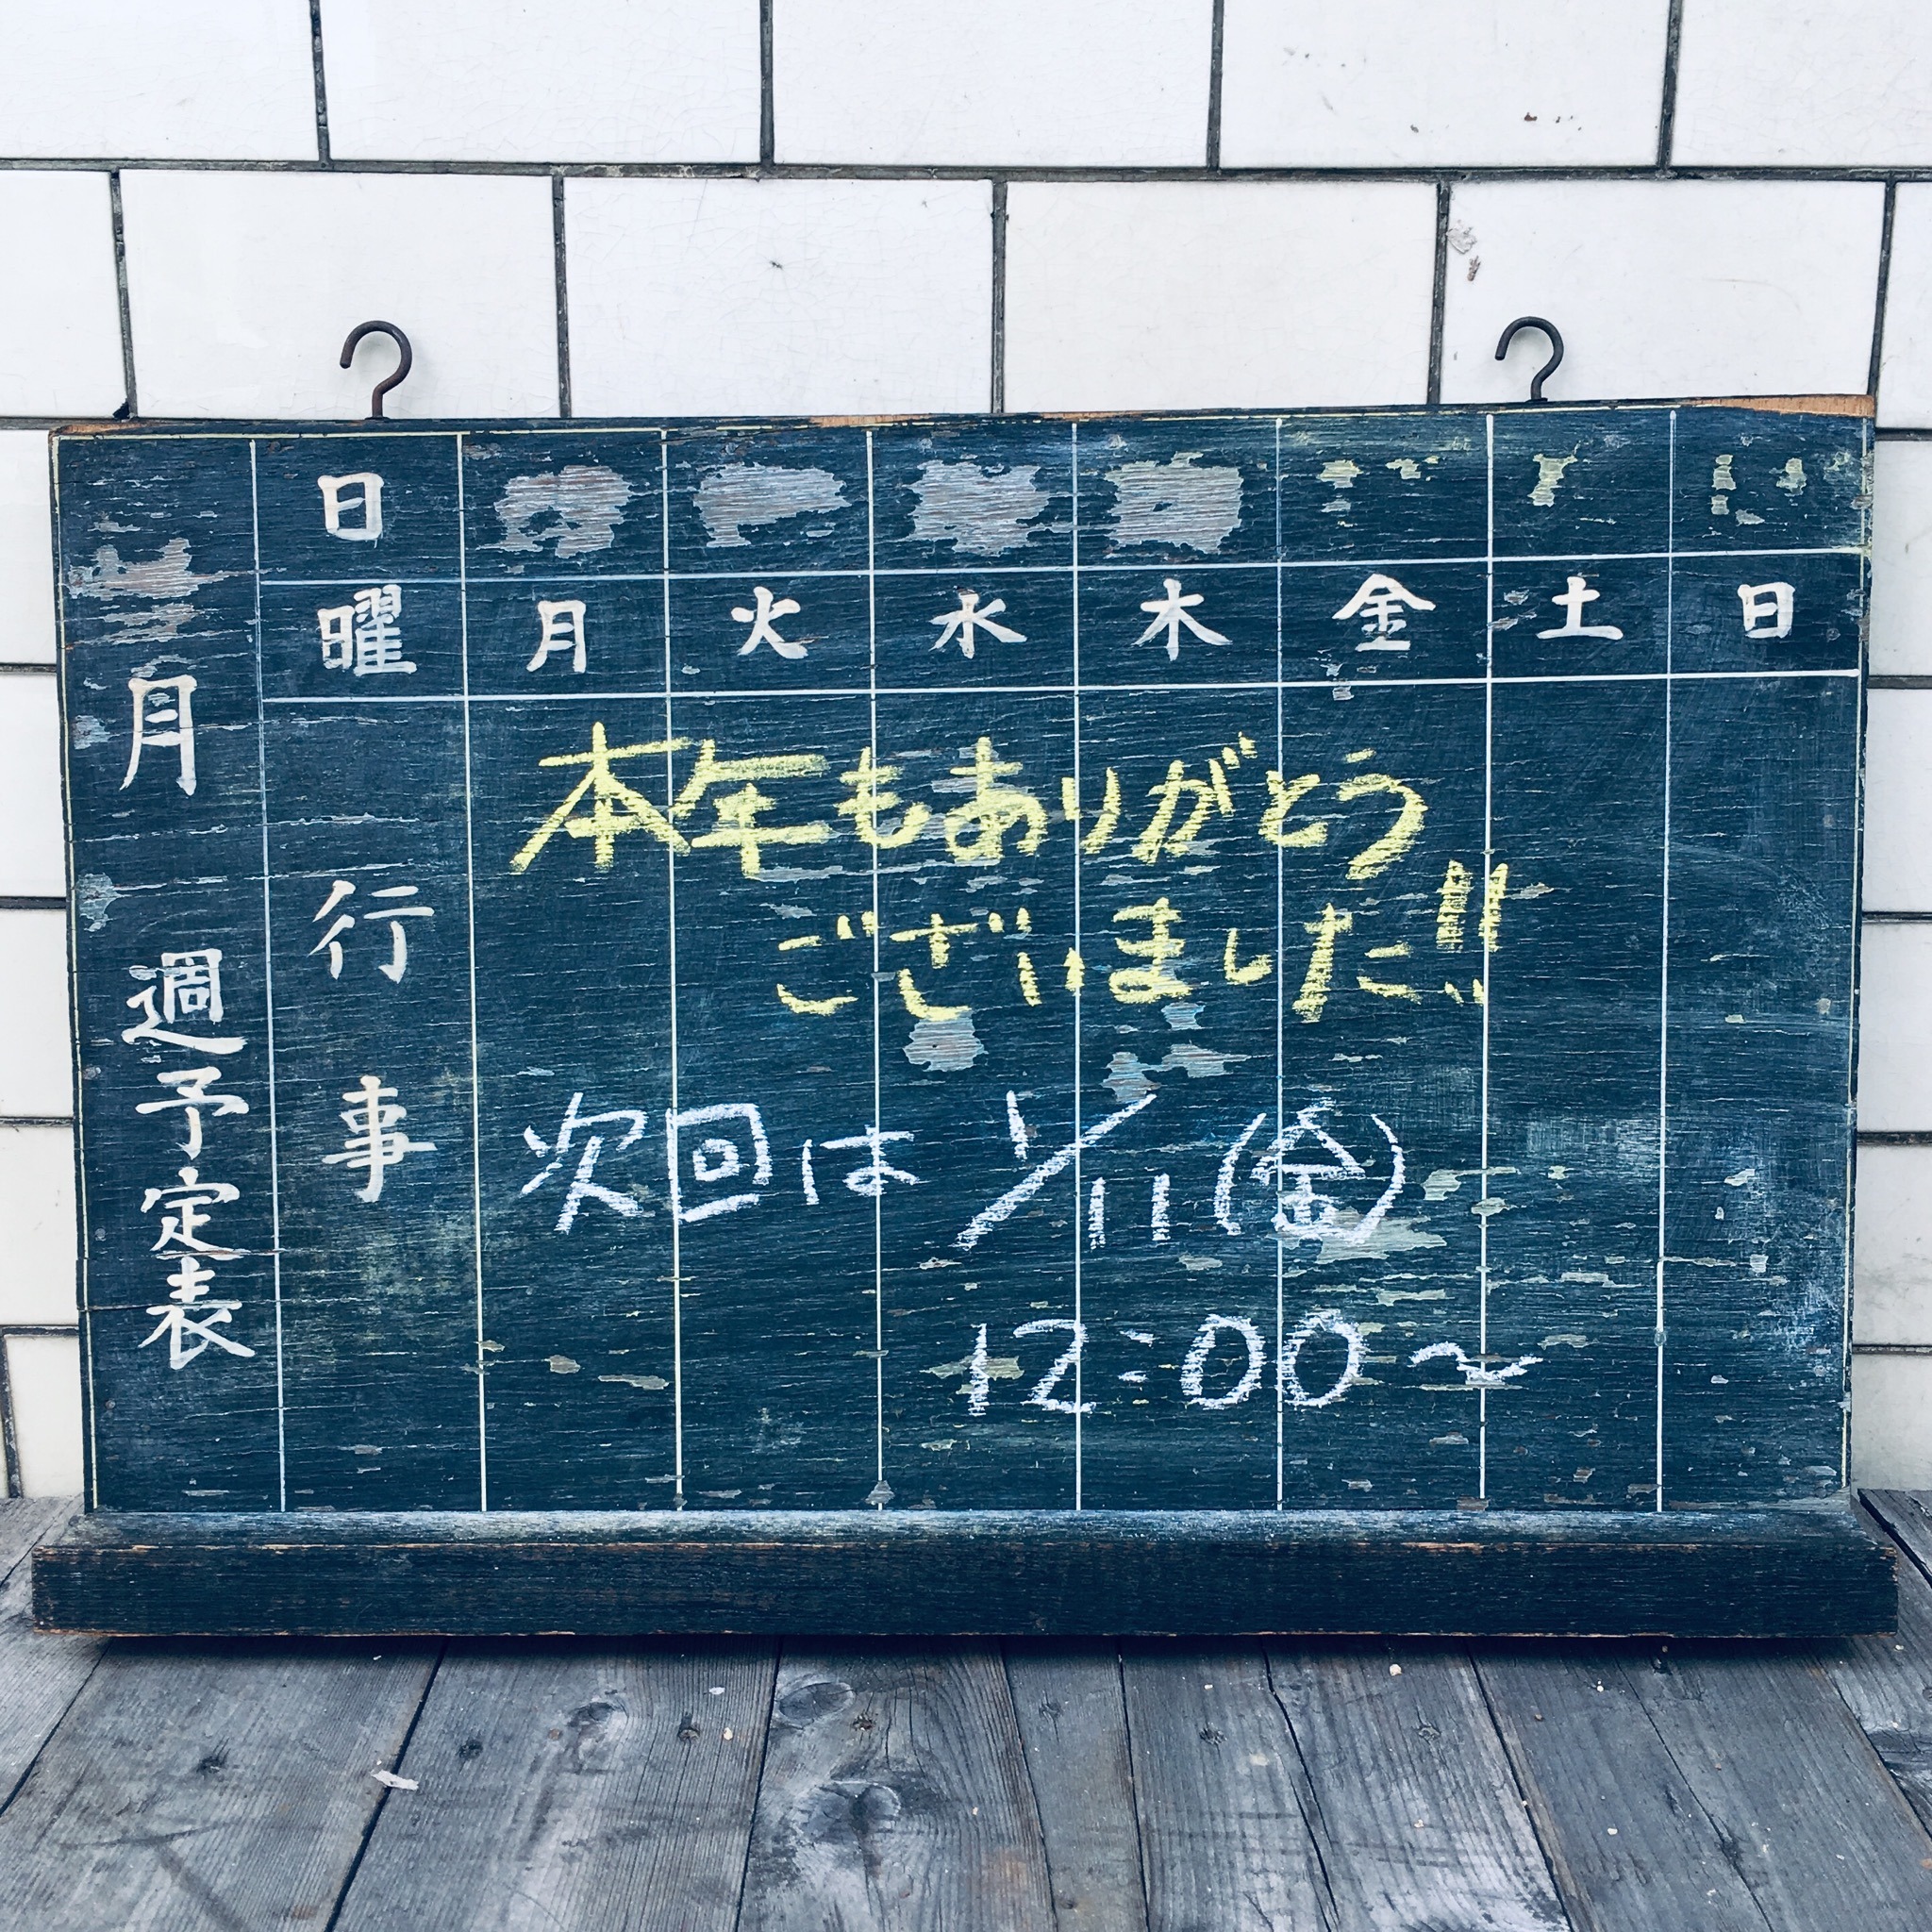 月 週予定表
日
曜 月 火 水 木 金 土 日
行事
本年もありがとう
ございました!!
次回は 1/11(金)
12:00〜